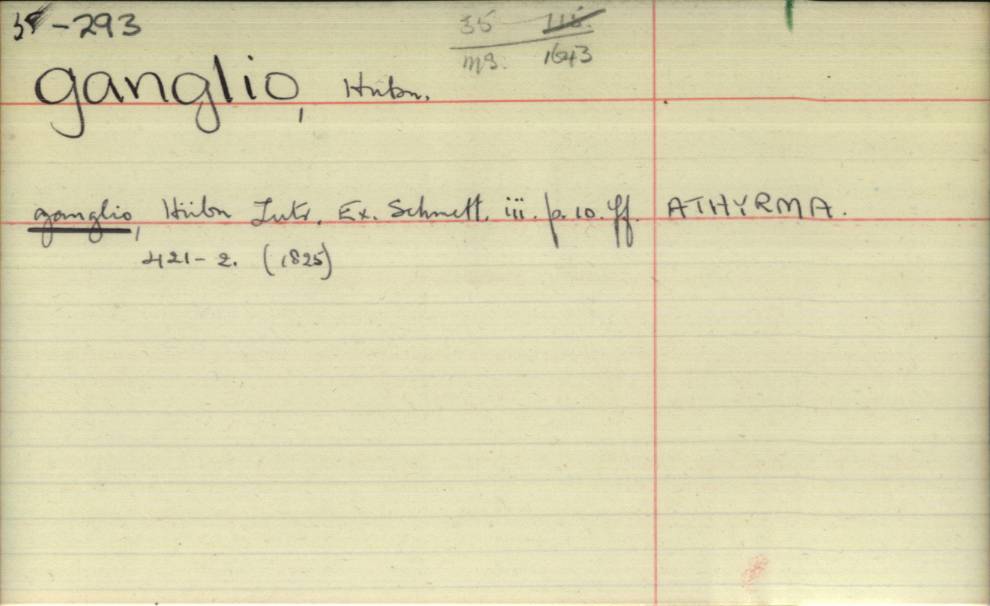 35-293
35 118.
ms. 1643
ganglio, Hübn.
ganglio, Hübn Zutr. Ex. Schmett. iii. p. 10. ff. ATHYRMA.
421-2. (1825)